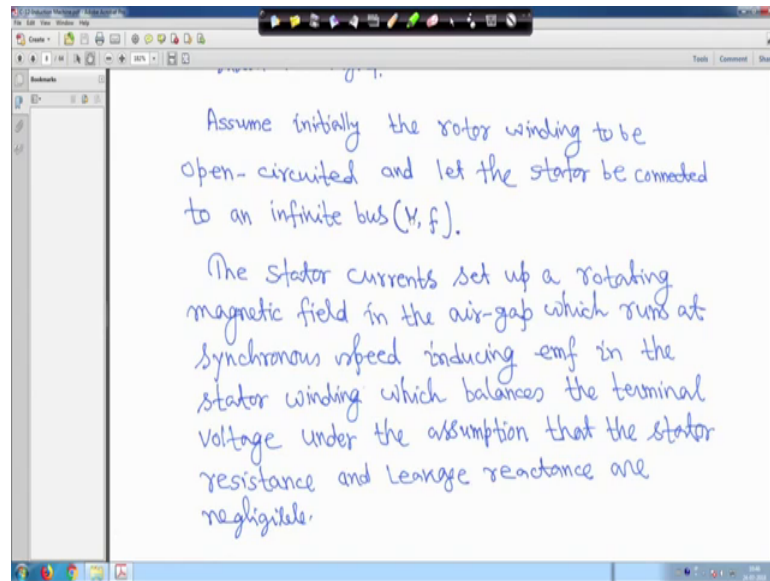 C-12-Induction Machine.pdf - Adobe Acrobat Pro
File Edit View Window Help
Create
1 / 14
182%
Tools Comment
Bookmarks
Assume initially the rotor winding to be
open-circuited and let the stator be connected
to an infinite bus (V, f).
The stator currents set up a rotating
magnetic field in the air-gap which runs at
synchronous speed inducing emf in the
stator winding which balances the terminal
voltage under the assumption that the stator
resistance and leakage reactance are
negligible.